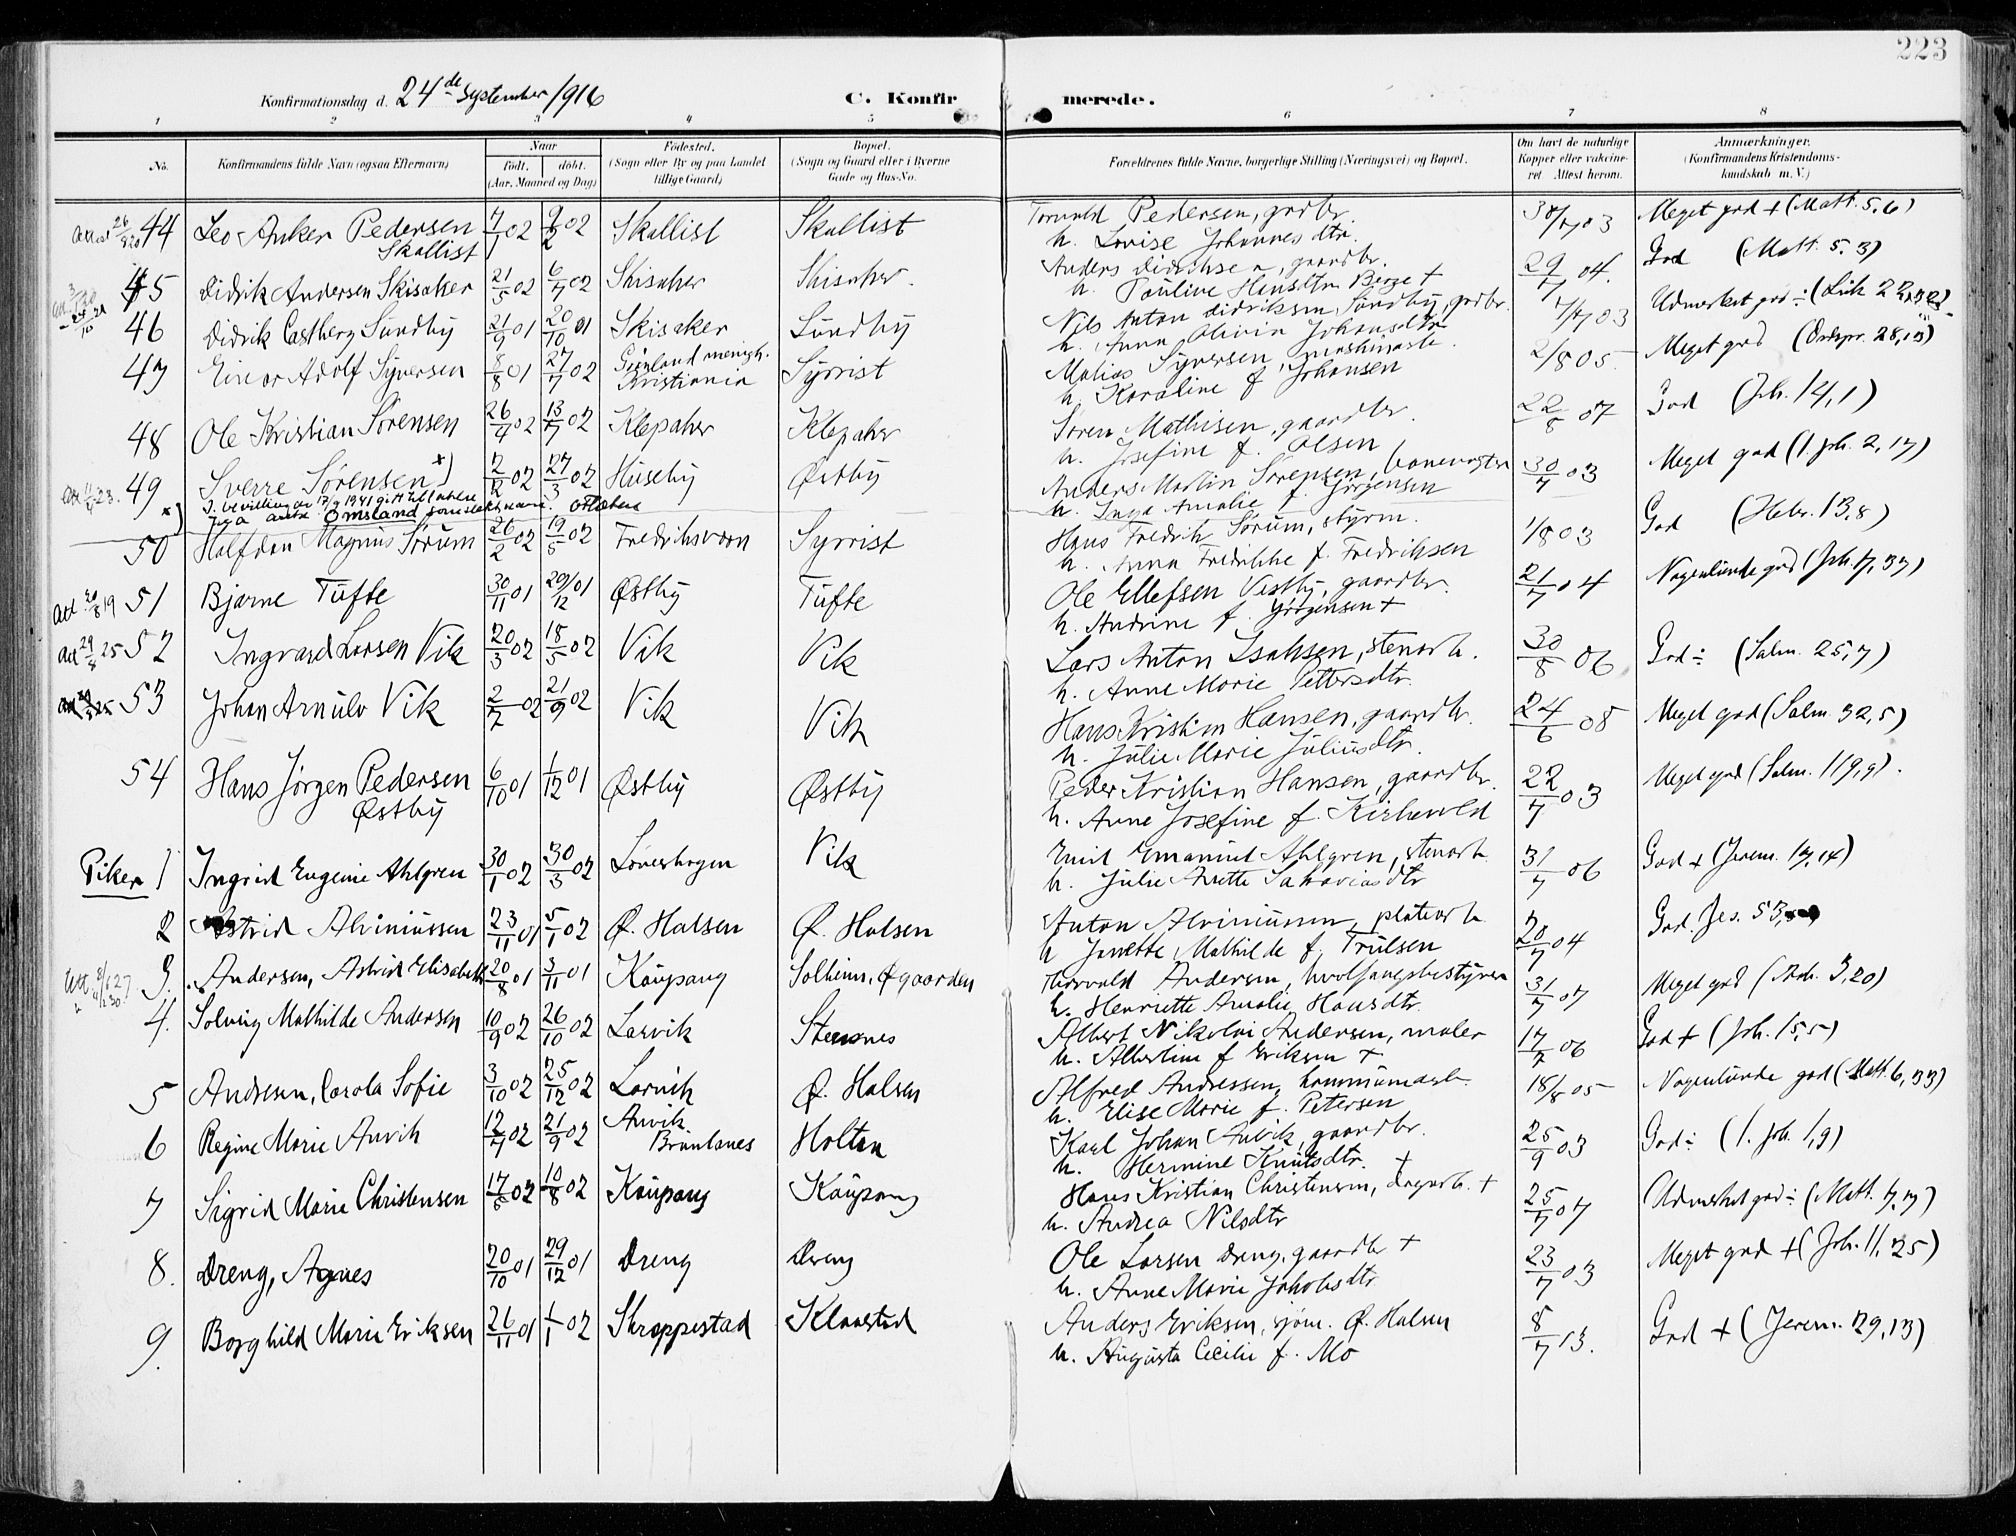 223
Konfirmationsdag d. 24de September 1916 C. Konfirmerede.
1 2 3 4 5 6 7 8
No. Konfirmandens fulde Navn (ogsaa Efternavn) Naar født. døbt. (Aar, Maaned og Dag) Fødested. (Sogn eller By og paa Landet tillige Gaard) Bopæl. (Sogn og Gaard eller i Byerne Gade og Hus-No. Forældrenes fulde Navne, borgerlige Stilling (Næringsvei) og Bopæl. Om havt de naturlige Kopper eller vakcineret Attest herom. Anmærkninger. (Konfirmandens Kristendomskundskab m. V.)
44 Leo Anker Pedersen 7/1 02 9/2 02 Skallist Skallist Torvald Pedersen, grdbr. 30/7 03 Meget god + (Matt. 5,6)
Skallist h. Lovise Johannesdtr.
45 Didrik Andersen Skisaker 21/5 02 6/7 02 Skisaker Skisaker Anders Didriksen, gaardbr. 29/7 04. God (Matt. 5,3)
h. Pauline Hensdtr. Berge +
46 Didrik Castberg Sundby 21/9 01 20/10 01 Skisaker Sundby Nils Anton Didriksen Sundby, grdbr. 7/7 03 Udmerket god ÷ (Luk 22,32)
h. Anna Olivia Johansdtr.
47 Einar Adolf Syversen 8/8 01 27/7 02 Grønland menigh. Kristiania Syrrist Matias Syversen, maskinarb. 2/8 05 Meget god (Ordspr. 28,13)
h. Karoline f. Johansen
48 Ole Kristian Sørensen 26/4 02 13/7 02 Klepaker Klepaker Søren Mathisen, gaardbr. 22/8 07 God (Joh. 14,1)
h. Josefine f. Olsen
49 Sverre Sørensen x) 2/2 02 27/3 02 Huseby Østby Anders Martin Sørensen, banevogter 30/7 03 Meget god (1. Joh. 2,17)
h. Inga Amalie f. Jørgensen
x) I. bevilling av 17/9 1941 gitt tillatelse
anta Omsland som slektsnavn.
50 Halfdan Magnus Sørum 26/2 02 19/5 02 Fredriksvern Syrrist Hans Fredrik Sørum, styrm. 1/8 03 God (Hebr. 13,8)
h. Anna Fredrikke f. Fredriksen
Att 20/8 19 51 Bjarne Tufte 30/11 01 29/12 01 Østby Tufte Ole Ellefsen Vestby, gaardbr. 21/7 04 Nogenlunde god (Joh. 7,37)
h. Andrine f. Jørgensen +
Att 29/8 25 52 Ingvard Larsen Vik 20/3 02 18/5 02 Vik Vik Lars Anton Isaksen, stenarb. 30/8 06 God ÷ (Salm. 25,7)
h. Anne Marie Pettersdtr.
53 Johan Arnulv Vik 2/7 02 21/9 02 Vik Vik Hans Kristian Hansen, gaardbr. 24/6 08 Meget god (Salm. 32,5)
h. Julie Marie Juliusdtr.
54 Hans Jørgen Pedersen 6/10 01 1/12 01 Østby Østby Peder Kristian Hansen, gaardbr. 22/7 03 Meget god (Salm. 119,9).
Østby h. Anne Josefine f. Kirkevold
Piker 1 Ingrid Eugenie Ahlgren 30/1 02 30/3 02 Løveskogen Vik Emil Emanuel Ahlgren, stenarb. 31/7 06 God + (Jerem. 17,14)
h. Julie Anette Sakariasdtr
2 Astrid Alviniussen 23/11 01 5/1 02 Ø. Halsen Ø. Halsen Anton Alviniussen, platearb. 20/7 04 God. Jes. 53
h Janette Mathilde f. Trulsen
3. Andersen, Astrid Elisabeth 20/8 01 3/11 01 Kaupang Solheim, Øgaarden Thorvald Andersen, hvalfangstbestyrer 31/7 07 Meget god (Aab. 3,20)
h. Henriette Amalie Hansdtr.
4. Solveig Mathilde Andersen 10/9 02 26/10 02 Larvik Stensnes Albert Nikolai Andersen, maler 17/7 06 God + (Joh. 15,5)
h. Albertine f Eriksen +
5 Andresen, Carola Sofie 3/10 02 25/12 02 Larvik Ø. Halsen Alfred Andressen, kommunearb. 18/8 05 Nogenlunde god (Matt. 6,33)
h. Elise Marie f. Petersen
6 Regine Marie Anvik 12/7 02 21/9 02 Anvik Brunlanes Holtan Karl Johan Anvik, gaardbr. 25/9 03 God ÷ (1. Joh. 1,9)
h. Hermine Knutsdtr. +
7 Sigrid Marie Christensen 17/6 02 10/8 02 Kaupang Kaupang Hans Kristian Christensen, dagarb. + 25/7 07 Udmerket god ÷ (Matt. 7,7)
h. Andrea Nilsdtr
8. Dreng, Agnes 20/10 01 29/12 01 Dreng Dreng Ole Larsen Dreng, gaardbr + 23/7 03 Meget god + (Joh. 11,25)
h. Anne Marie Jakobsdtr
9. Borghild Marie Eriksen 26/11 01 1/1 02 Skreppestad Klaastad Anders Eriksen, sjøm. Ø. Halsen 8/7 13. God + (Jerem. 29,13)
h. Augusta Cecilie f. Mo